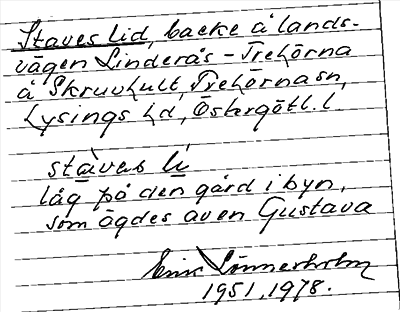 Staves lid, backe å lands-
vägen Linderås - Trehörna
å Skruvhult, Trehörna sn,
Lysings hd, Östergötl. l.
stàvas li
låg på den gård i byn,
som ägdes av en Gustava
Eric Lönnerholm
1951, 1978.